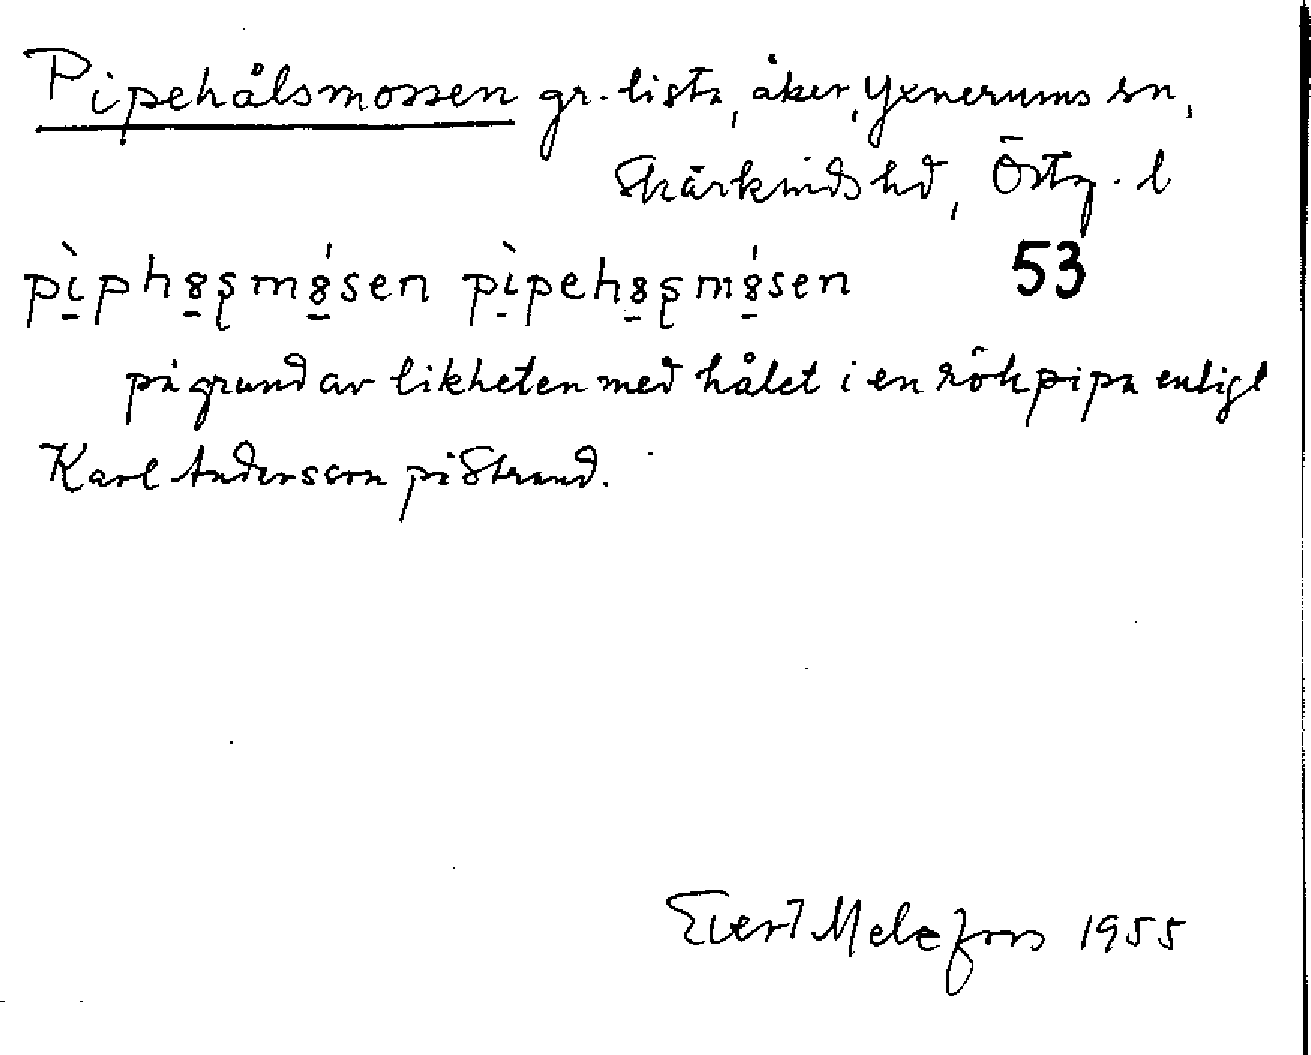 Pipehålsmossen gr. lista, åker, Yxnerums sn,
Skärkinds hd, Östg. l
pìph8̠ʂm8̠́sen pìpeh8̠ʂm8̠́sen 53
på grund av likheten med hålet i en rökpipa enligt
Karl Andersson på Strand.
Evert Melefors 1955